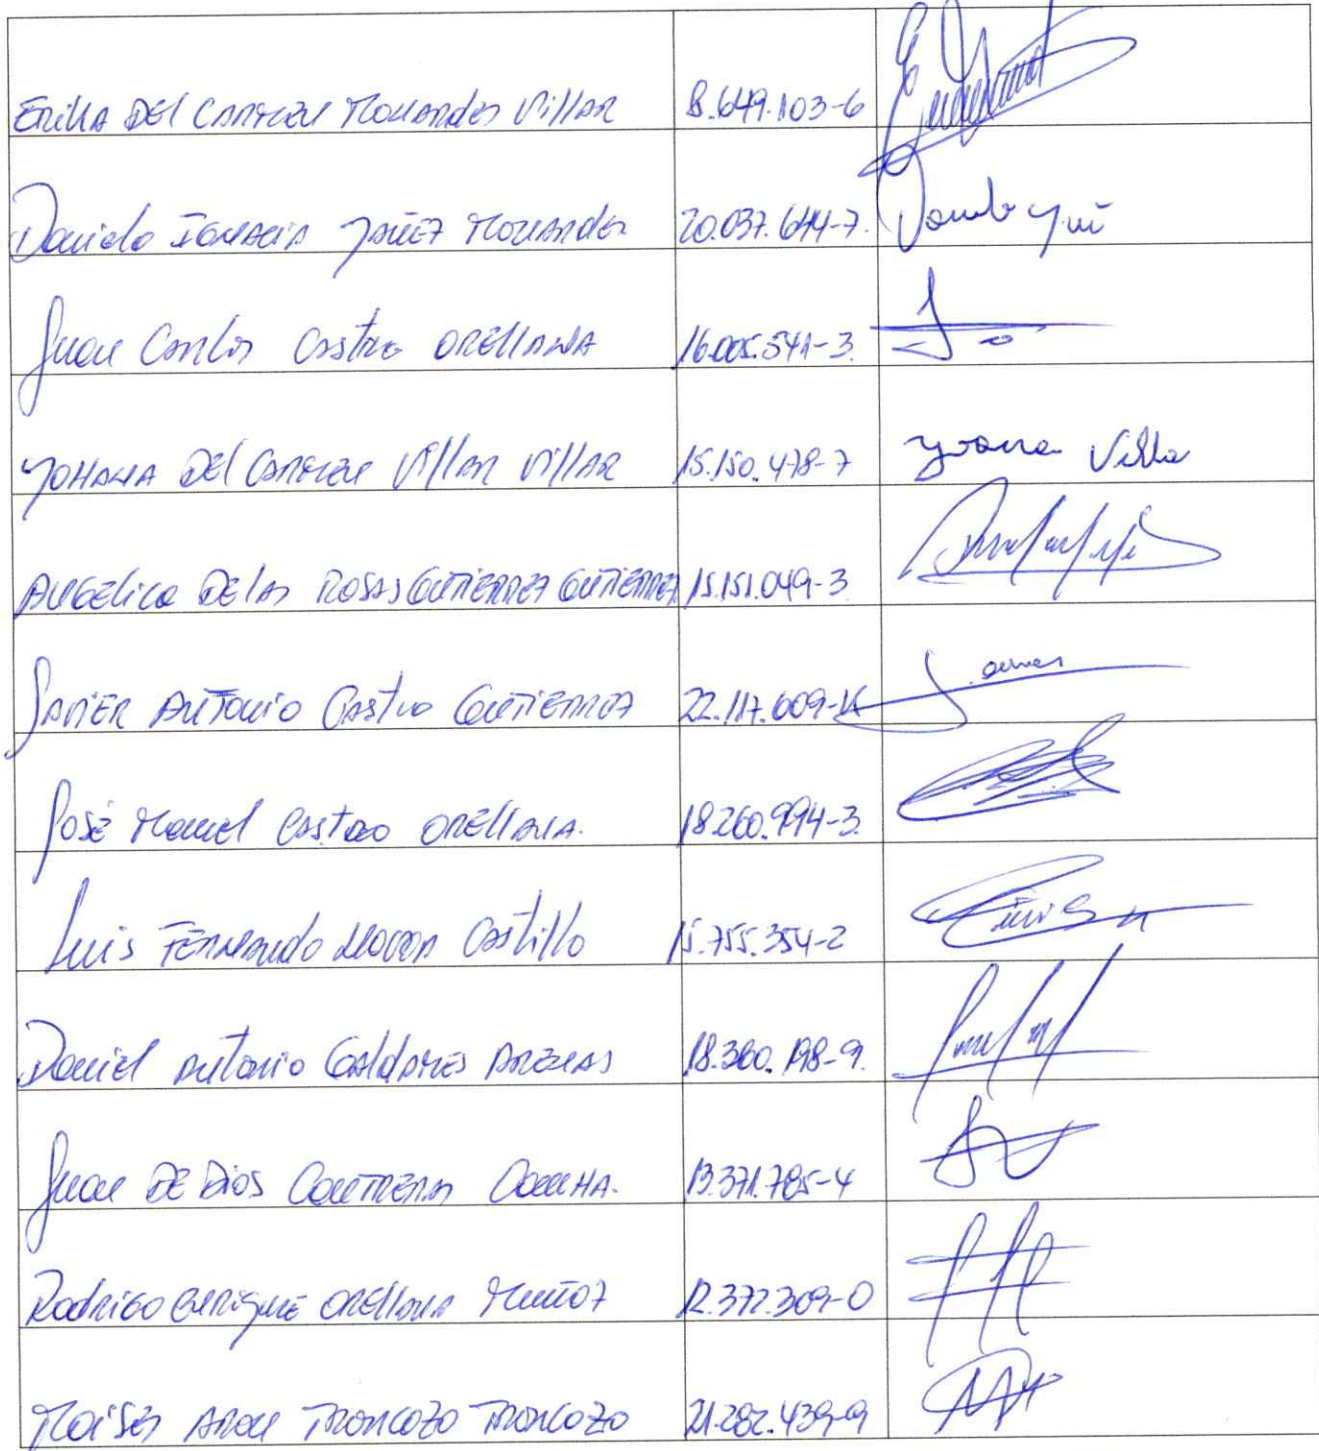 Erika Del Carmen Monardes Villar 8.649.103-6
Daniela Ignacia Yañez Monardes 20.037.644-7
Juan Carlos Castro Orellana 16.005.541-3
Yohana Del Carmen Villar Villar 15.150.478-7 Yoana Villa
Angelica De las Rosas Gutierrez Gutierrez 15.151.049-3
Javier Antonio Castro Gutierrez 22.117.609-K
José Manuel Castro Orellana. 18.260.994-3
Luis Fernando Castillo 15.755.354-2
Daniel Antonio Galdames Arenas 18.360.198-9
Juan De Dios Contreras Concha. 13.371.785-4
Rodrigo Enrique Orellana Muñoz 12.372.309-0
Moisés Aron Troncozo Troncozo 21.282.439-9